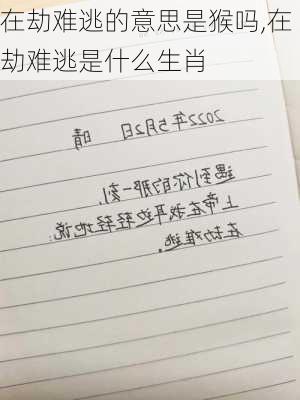 在劫难逃的意思是猴吗,在
劫难逃是什么生肖
2022年5月2日 晴
遇到你的那一刻,
上帝在我耳边轻轻地说:
在劫难逃。